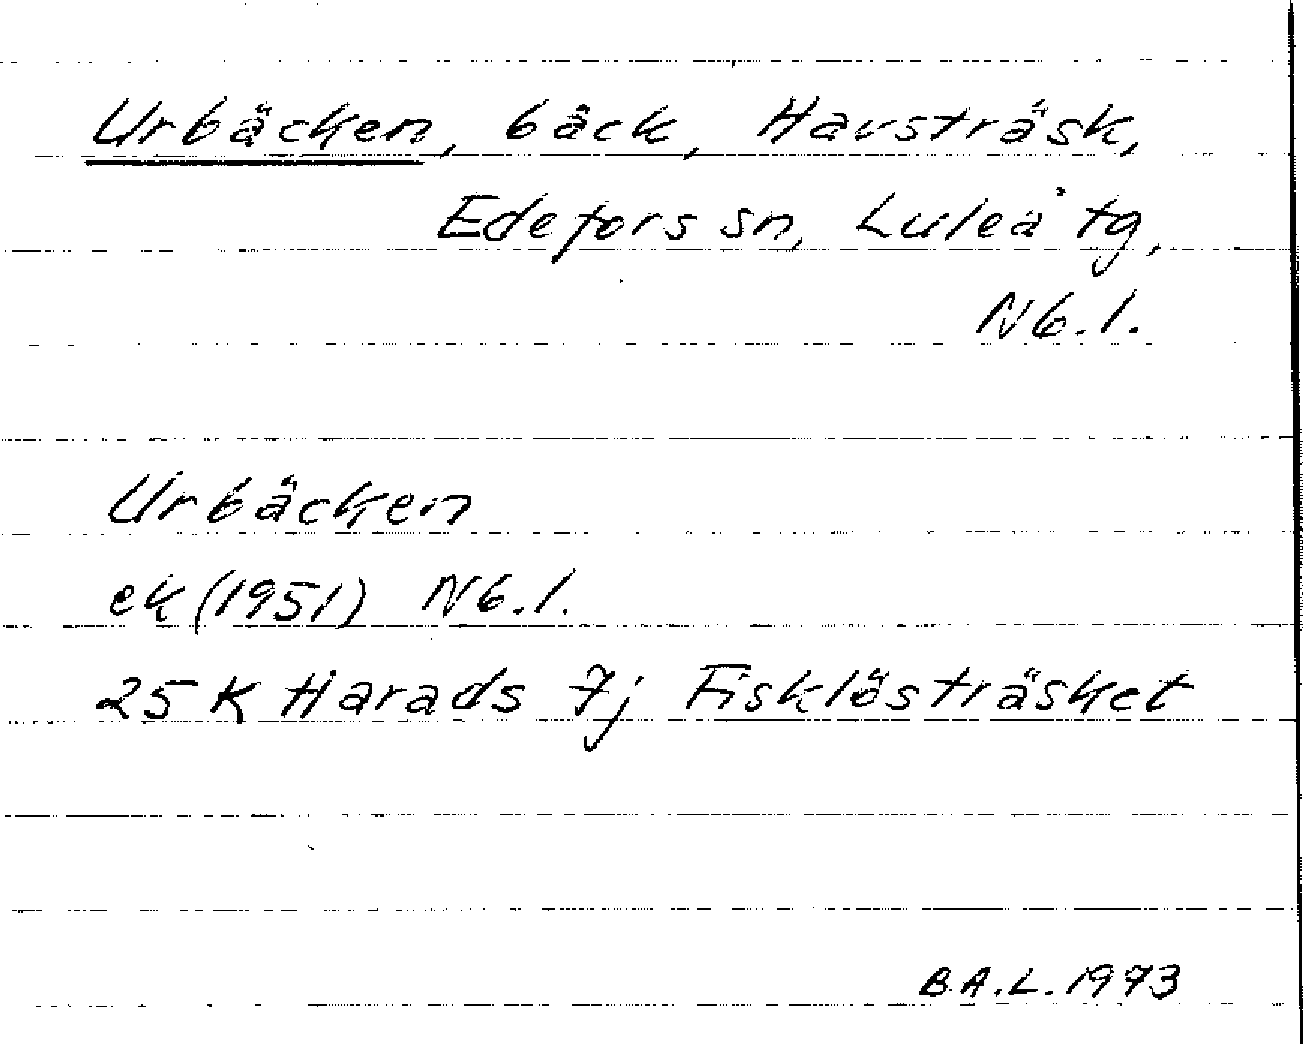 Urbäcken, bäck, Havsträsk,
Edefors sn, Luleå tg,
Nb.l.
Urbäcken
ek (1951) Nb.l.
25 K Harads 7j Fisklösträsket
B.A.L. 1973